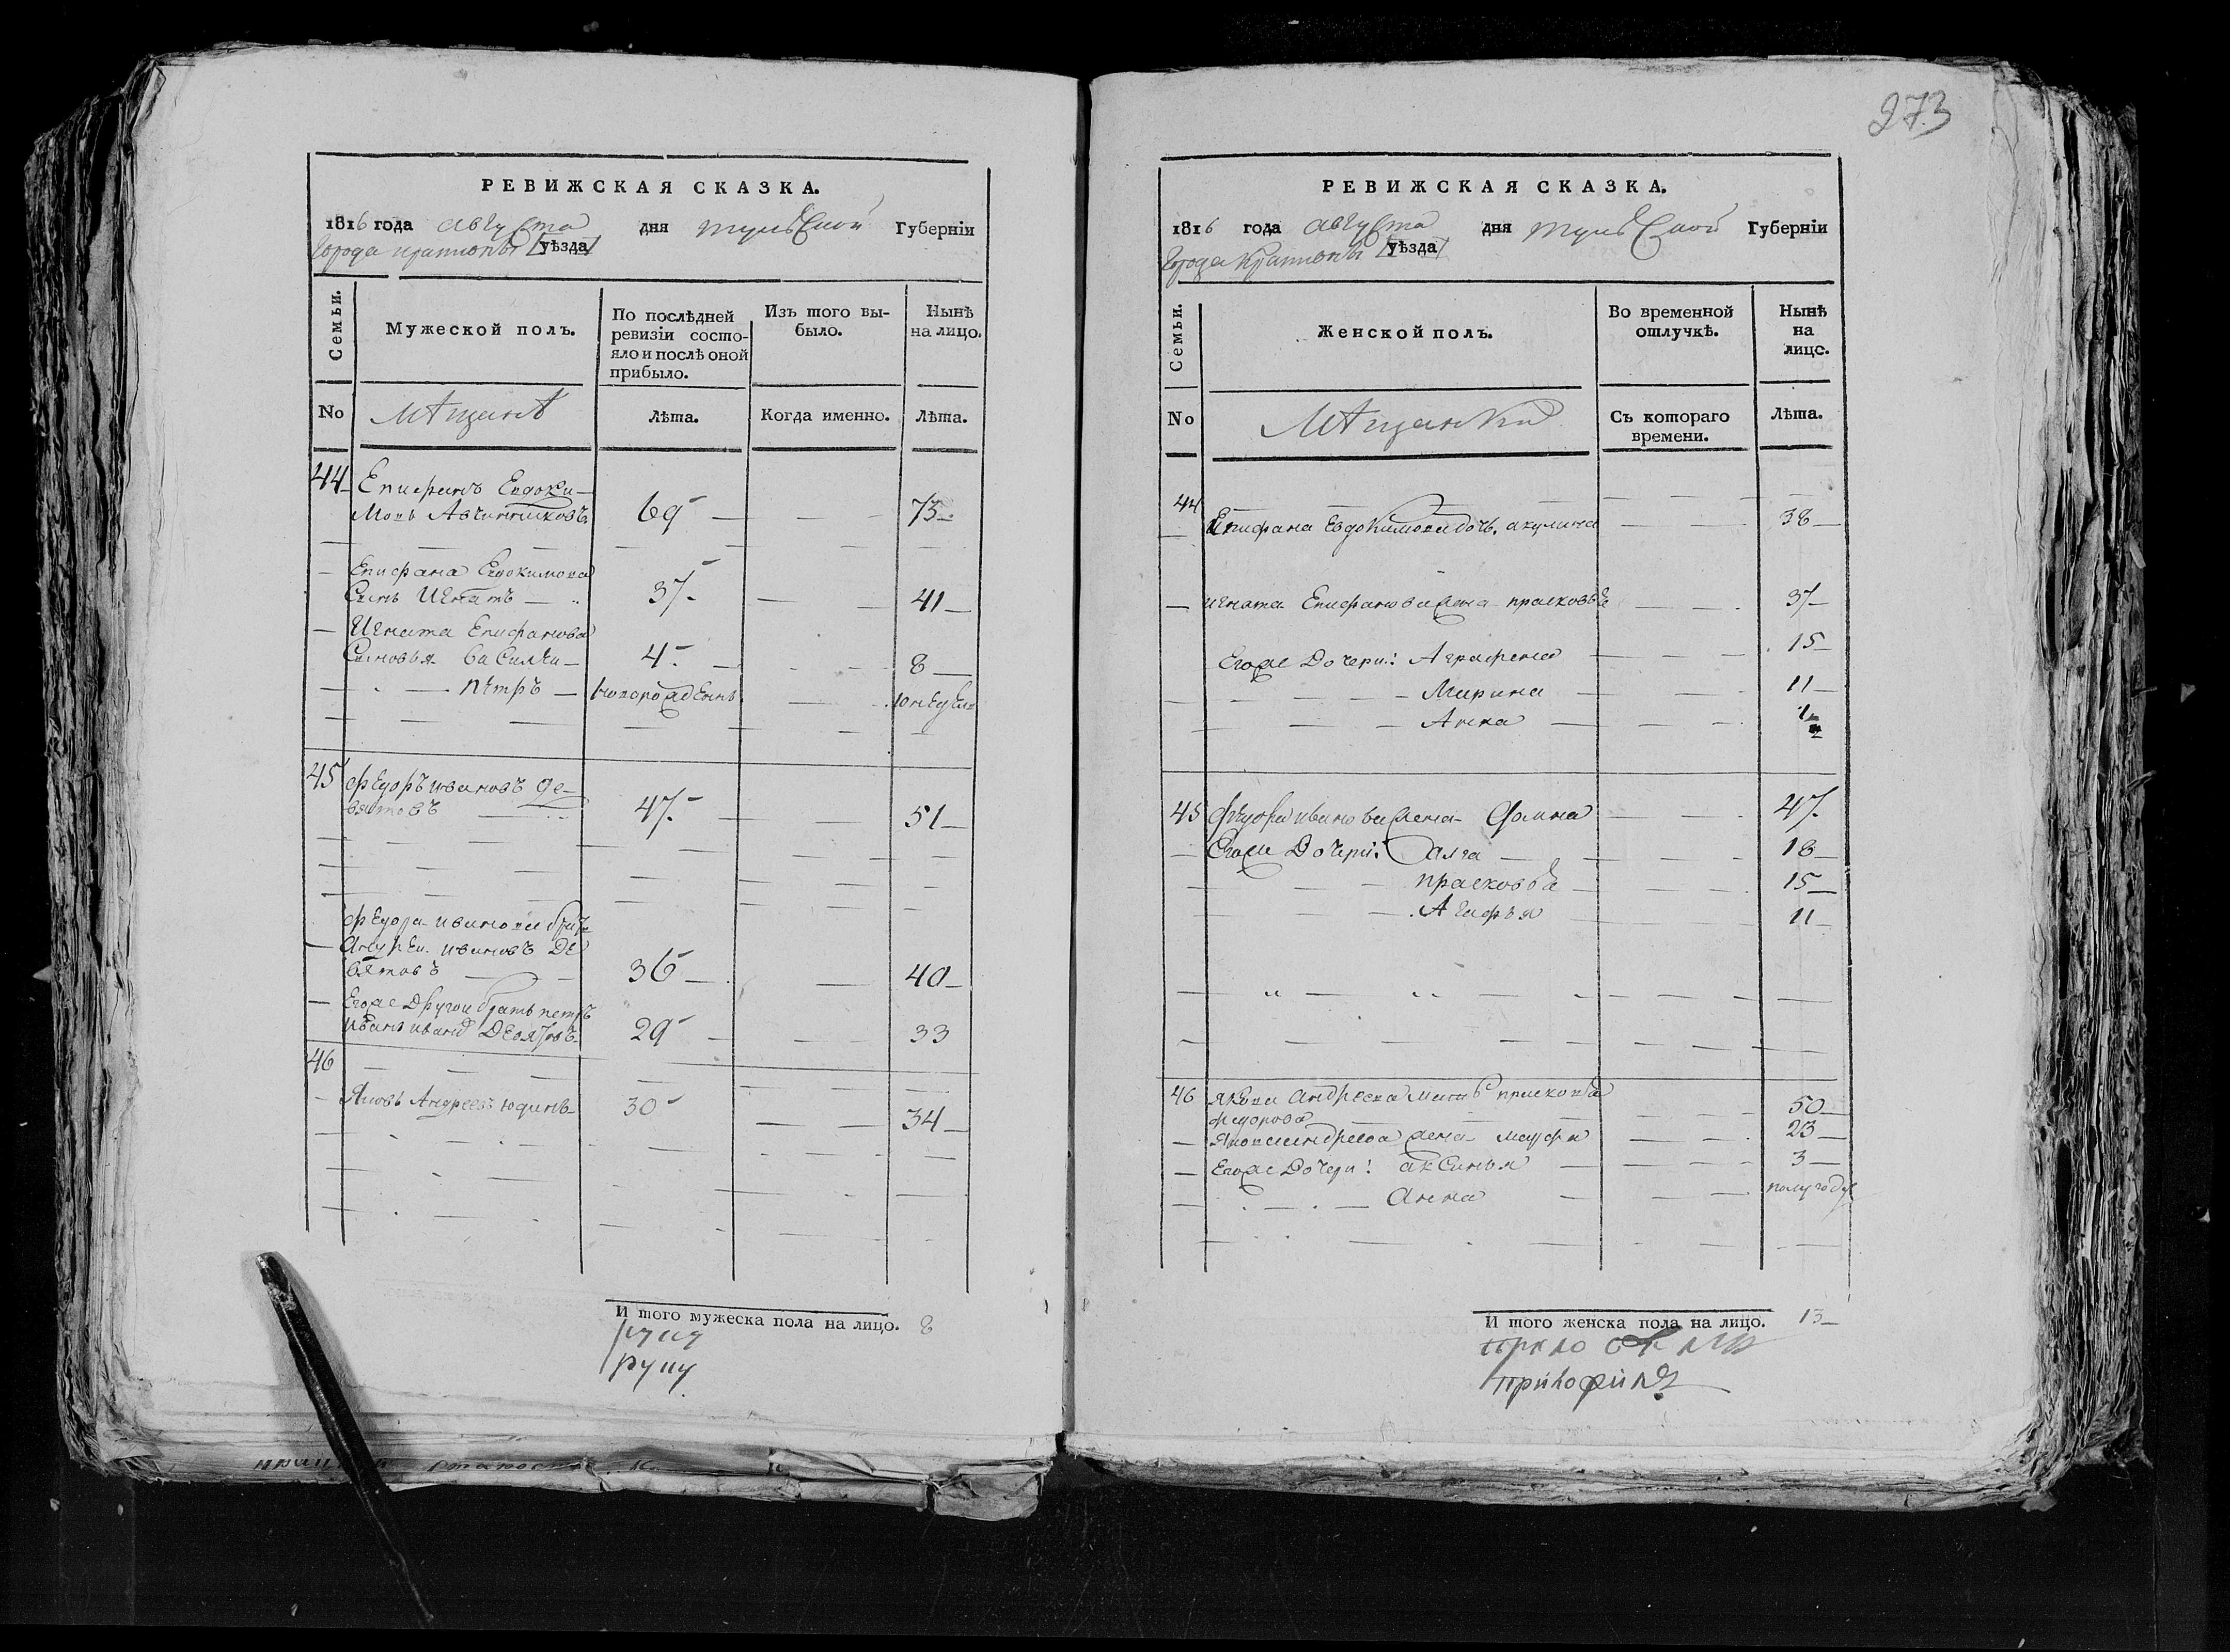 РЕВИЖСКАЯ СКАЗКА.
1816 года августа дня тульской Губерніи
Города крапивны уѣзда
Семьи.
Мужеской полъ.
По послѣдней ревизіи состо-яло и послѣ оной прибыло.
Изъ того вы-было.
Нынѣ на лицо.
No
мѣщанѣ
Лѣта.
Когда именно.
Лѣта.
44
Епифанъ Евдоки-
мовъ Авчинниковъ 69 73
Епифана Евдокимова
Сынъ Игнатъ 37 41
Игната Епифанова
Сыновья Василеи 4 8
пѣтръ новорожденъ 10 недель
45 Федоръ ивановъ де-
вятовъ 47 51
Федора иванова братъ
Андреи ивановъ де
вятовъ 36 40
Егоже Другои братъ петръ
Девятовъ 29 33
46
Яковъ Андреевъ юдинъ 30 34
И того мужеска пола на лицо. 8
руку
273
РЕВИЖСКАЯ СКАЗКА.
1816 года августа дня тульской Губерніи
Города Крапивны уѣзда
Семьи.
Женской полъ.
Во временной отлучкѣ.
Нынѣ на лицо.
No
Мѣщанки
Съ котораго времени.
Лѣта.
44
Епифана Евдокимова дочь акулина 38
игната Епифанова жена прасковья 37
Егоже Дочери: Аграфена 15
Марина 11
Анна
45 Федора иванова жена 47
Егоже Дочери: 18
прасковья 15
Агафья 11
46 Якова Андреева мать прасковья
Федорова 50
Якова андреева жена марфа 23
Егоже Дочери: аксинья 3
Анна полугоду
И того женска пола на лицо. 13